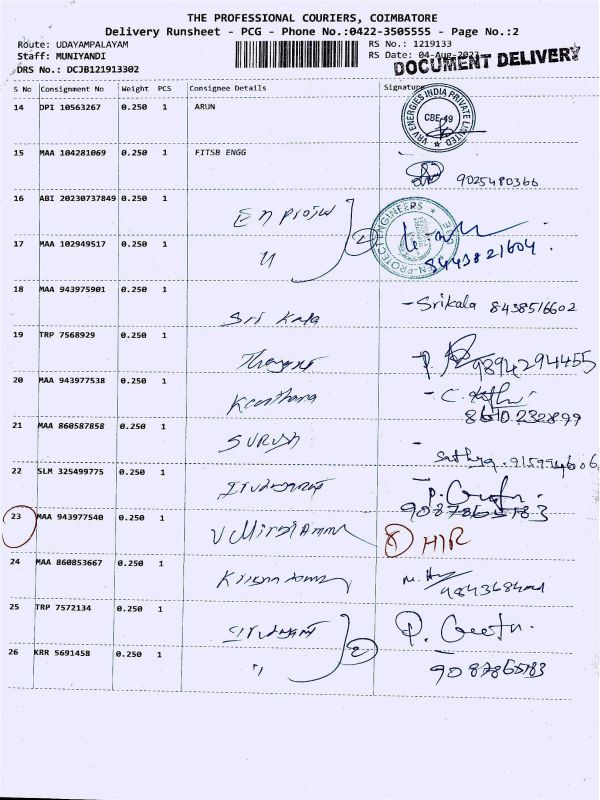 THE PROFESSIONAL COURIERS, COIMBATORE
Delivery Runsheet - PCG - Phone No.:0422-3505555 - Page No.:2
Route: UDAYAMPALAYAM RS No.: 1219133
Staff: MUNIYANDI RS Date: 04-Aug-2023
DRS No.: DCJB121913302 DOCUMENT DELIVERY
S No Consignment No Weight PCS Consignee Details Signature
14 DPI 10563267 0.250 1 ARUN
VRV ENERGIES INDIA PRIVATE LIMITED CBE-49
15 MAA 104281069 0.250 1 FITSB ENGG
9025480366
16 ABI 20230737849 0.250 1
17 MAA 102949517 0.250 1 8443821604
18 MAA 943975901 0.250 1 Sri Kala - Srikala 8438516602
19 TRP 7568929 0.250 1 P. 9894294455
20 MAA 943977538 0.250 1 - C.
21 MAA 860587858 0.250 1 SURUSH - Sathya
22 SLM 325499775 0.250 1 P.
9087865183
23 MAA 943977540 0.250 1 HIR
24 MAA 860853667 0.250 1 M.
25 TRP 7572134 0.250 1 2 P.
26 KRR 5691458 0.250 1 9087865183